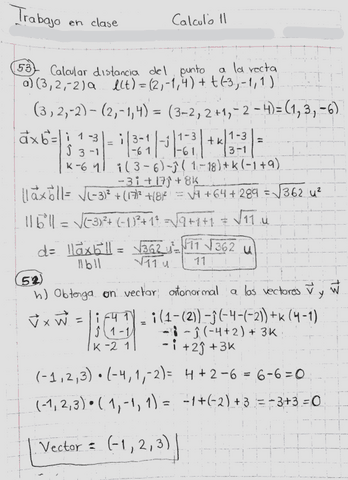 Trabajo en clase Calculo II
53- Calcular distancia del punto a la recta
a) (3, 2, -2) a l(t) = (2, -1, 4) + t(-3, -1, 1)
(3, 2, -2) - (2, -1, 4) = (3-2, 2+1, -2-4) = (1, 3, -6)
a⃗xb⃗ = | i 1 -3 | = i |3 -1| - j |1 -3| + k |1 -3| =
| j 3 -1 | |-6 1| |-6 1| |3 -1|
| k -6 1 | i(3-6) - j(1-18) + k(-1+9)
-3i + 17j + 8k
||a⃗xb⃗|| = √(-3)² + (17)² + (8)² = √9 + 64 + 289 = √362 u²
||b⃗|| = √(-3)² + (-1)² + 1² = √9+1+1 = √11 u
d = ||a⃗xb⃗|| / ||b|| = √362 u² / √11 u = √11 √362 / 11 u
52
h) Obtenga un vector ortonormal a los vectores v⃗ y w⃗
v⃗ x w⃗ = | i -4 1 | = i(1-(2)) - j(-4-(-2)) + k(4-1)
| j 1 -1 | -i - j(-4+2) + 3k
| k -2 1 | -i + 2j + 3k
(-1, 2, 3) • (-4, 1, -2) = 4 + 2 - 6 = 6-6 = 0
(-1, 2, 3) • (1, -1, 1) = -1 + (-2) + 3 = -3+3 = 0
Vector = (-1, 2, 3)